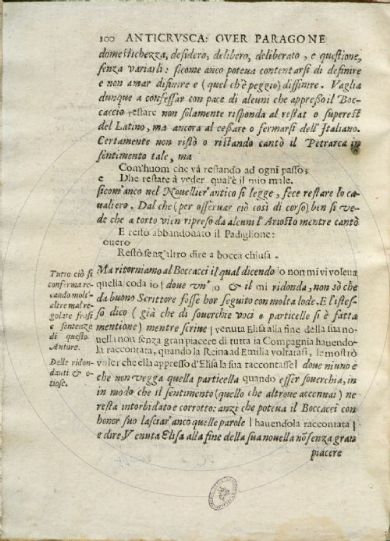 100 ANTICRVSCA: OVER PARAGONE
dimestichezza, desidero, delibero, deliberato, e questione,
senza variarli: sicome anco poteva contentarsi di definire
e non amar difinire e (quel ch'è peggio) diffinire. Vaglia
dunque a confessar con pace di alcuni che appresso il Boc-
caccio restare non solamente risponda al restat o superest
del Latino, ma ancora al cessare o fermarsi dell'Italiano.
Certamente non ristò o ristando cantò il Petrarca in
sentimento tale, ma
Com'huom che và restando ad ogni passo;
e Che restare à veder qual'è il mio male.
sicom'anco nel Nouellier'antico si legge, fece restare lo ca-
ualiero. Dal che (per osseruar ciò così di corso) ben si ve-
de che a torto vien ripreso da alcuni l'Ariosto mentre cantò
E restò abbandonato il Padiglione:
overo
Restò senz'altro dire a bocca chiusa.
Ma ritorniamo al Boccacci il qual dicendo o non mi vi voleua
quella coda io! dove vn' io & il mi ridonda, non sò che
da buono Scrittore fosse hor seguito con molta lode. E l'istes-
so dico (già che di souerchie voci o particelle si è fatta
mentione) mentre scriue | venuta Elisa alla fine della sua no-
uella non senza gran piacere di tutta la Compagnia hauendo-
la raccontata, quando la Reina ad Emilia voltatasi, le mostrò
voler che ella appresso d'Elisa la sua raccontasse | doue niuno e
che non vegga quella particella quando esser souerchia, in
in modo che il sentimento (quello che altroue accennai) ne
resta intorbidato e corrotto: anzi che potiua il Boccacci con
honor suo lasciar'anco quelle parole | hauendola raccontata |
e dire, Venuta Elisa alla fine della sua nouella nõ senza gran
piacere
Tutto ciò si
conferma re-
cando molt'-
altre mal re-
golate frasi
e sentenze
di questo
Autore.
Delle ridon-
danti & o-
tiose.